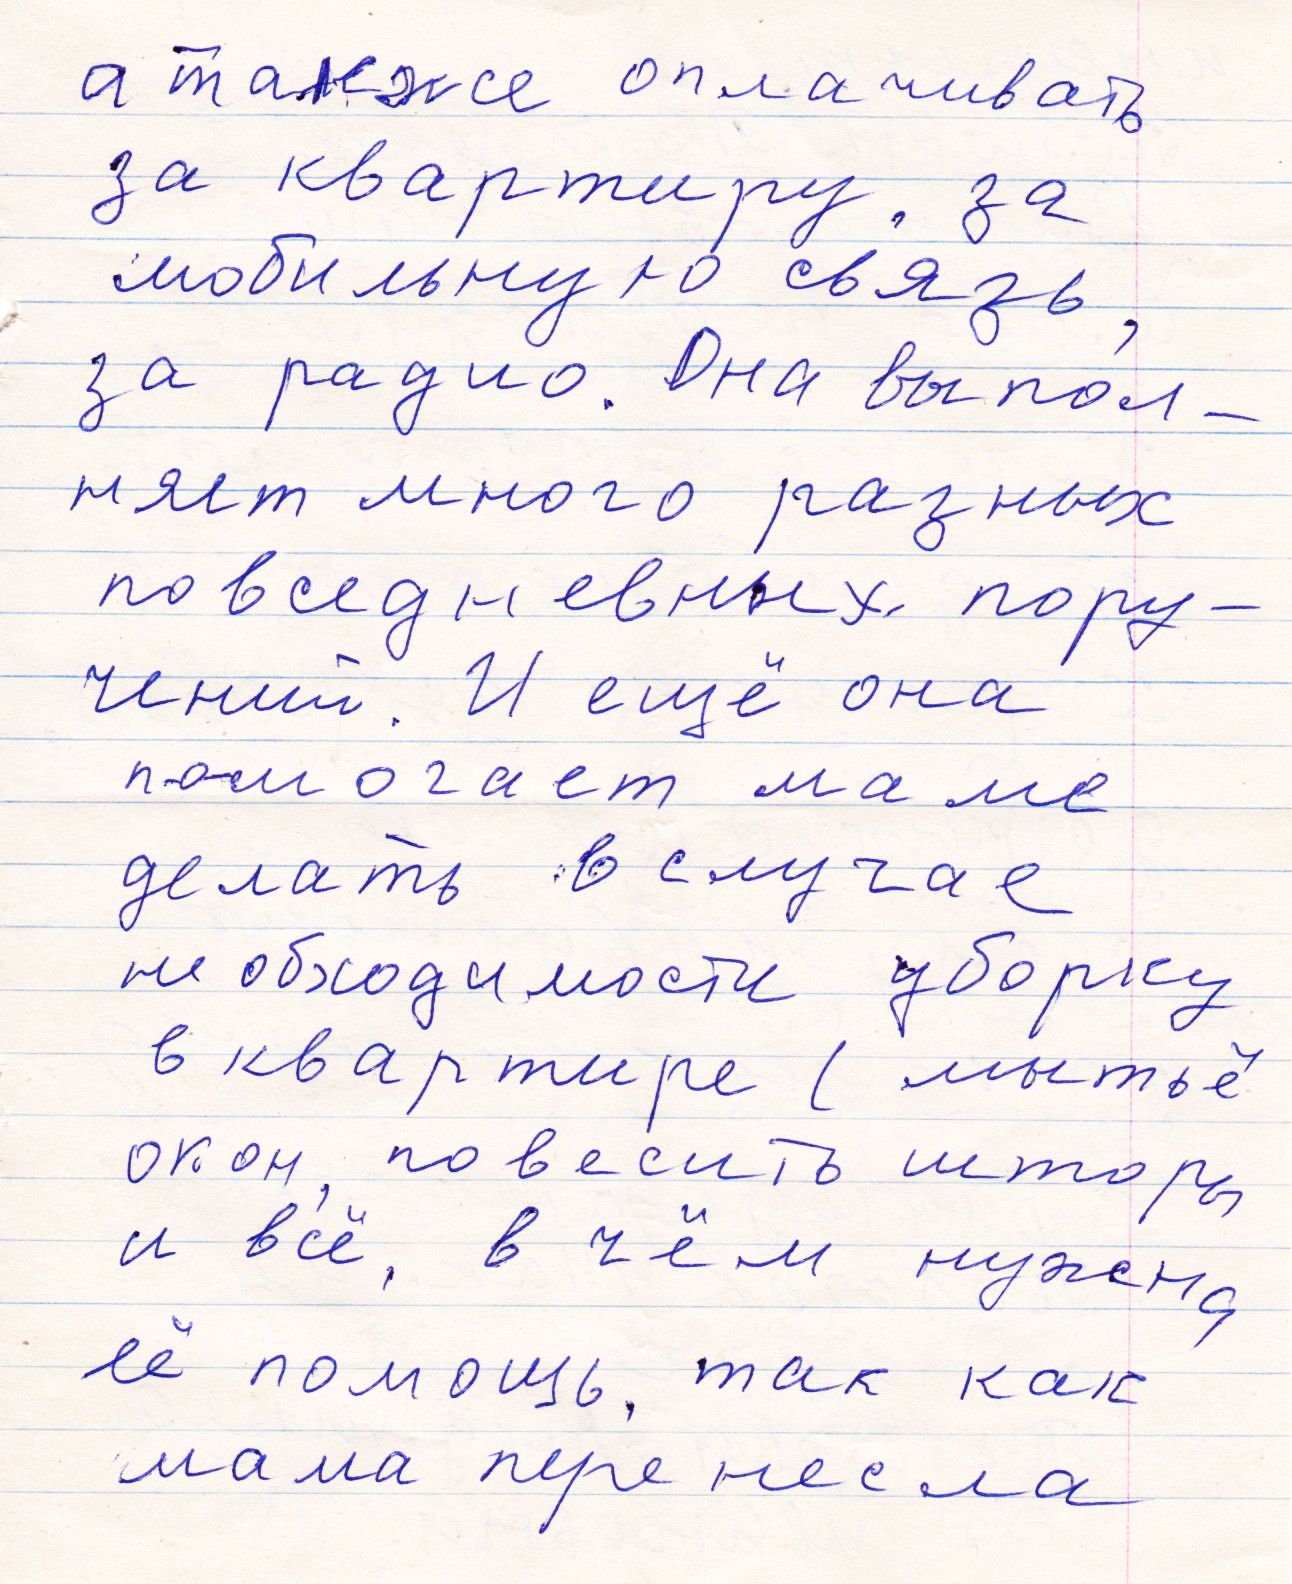 а также оплачивать
за квартиру, за
мобильную связь,
за радио. Она выпол-
няет много разных
повседневных пору-
чений. И ещё она
помогает маме
делать в случае
необходимости уборку
в квартире ( мытьё
окон, повесить шторы
и всё, в чём нужна
её помощь, так как
мама перенесла